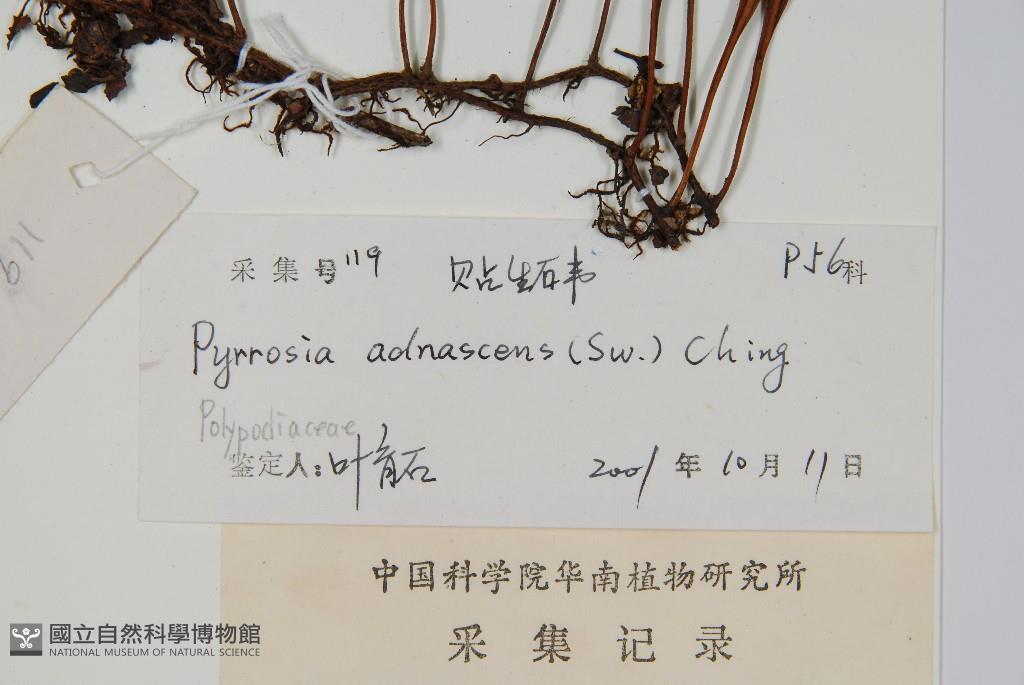 119
采集号 119 贴生石韦 P56科
Pyrrosia adnascens (Sw.) Ching
Polypodiaceae
鉴定人: 叶育石 2001 年 10 月 11 日
中国科学院华南植物研究所
采集记录
國立自然科學博物館
NATIONAL MUSEUM OF NATURAL SCIENCE